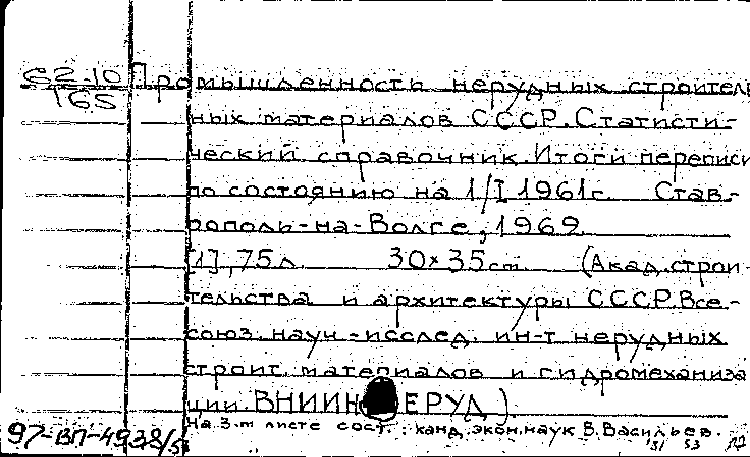 62-10 Промышленность нерудных строитель
165
ных материалов СССР. Статисти-
ческий справочник. Итоги переписи
по состоянию на 1/I 1961г. Став-
рополь-на-Волге, 1962.
[1], 75л. 30×35cm. (Акад. строи-
тельства и архитектуры СССР. Все-
союз. науч-исслед. ин-т нерудных
строит. материалов и гидромеханиза
ции. ВНИИНЕРУД).
На 3-м листе сост.: канд. экон. наук В. Васильев.
97-ВП-4938/5